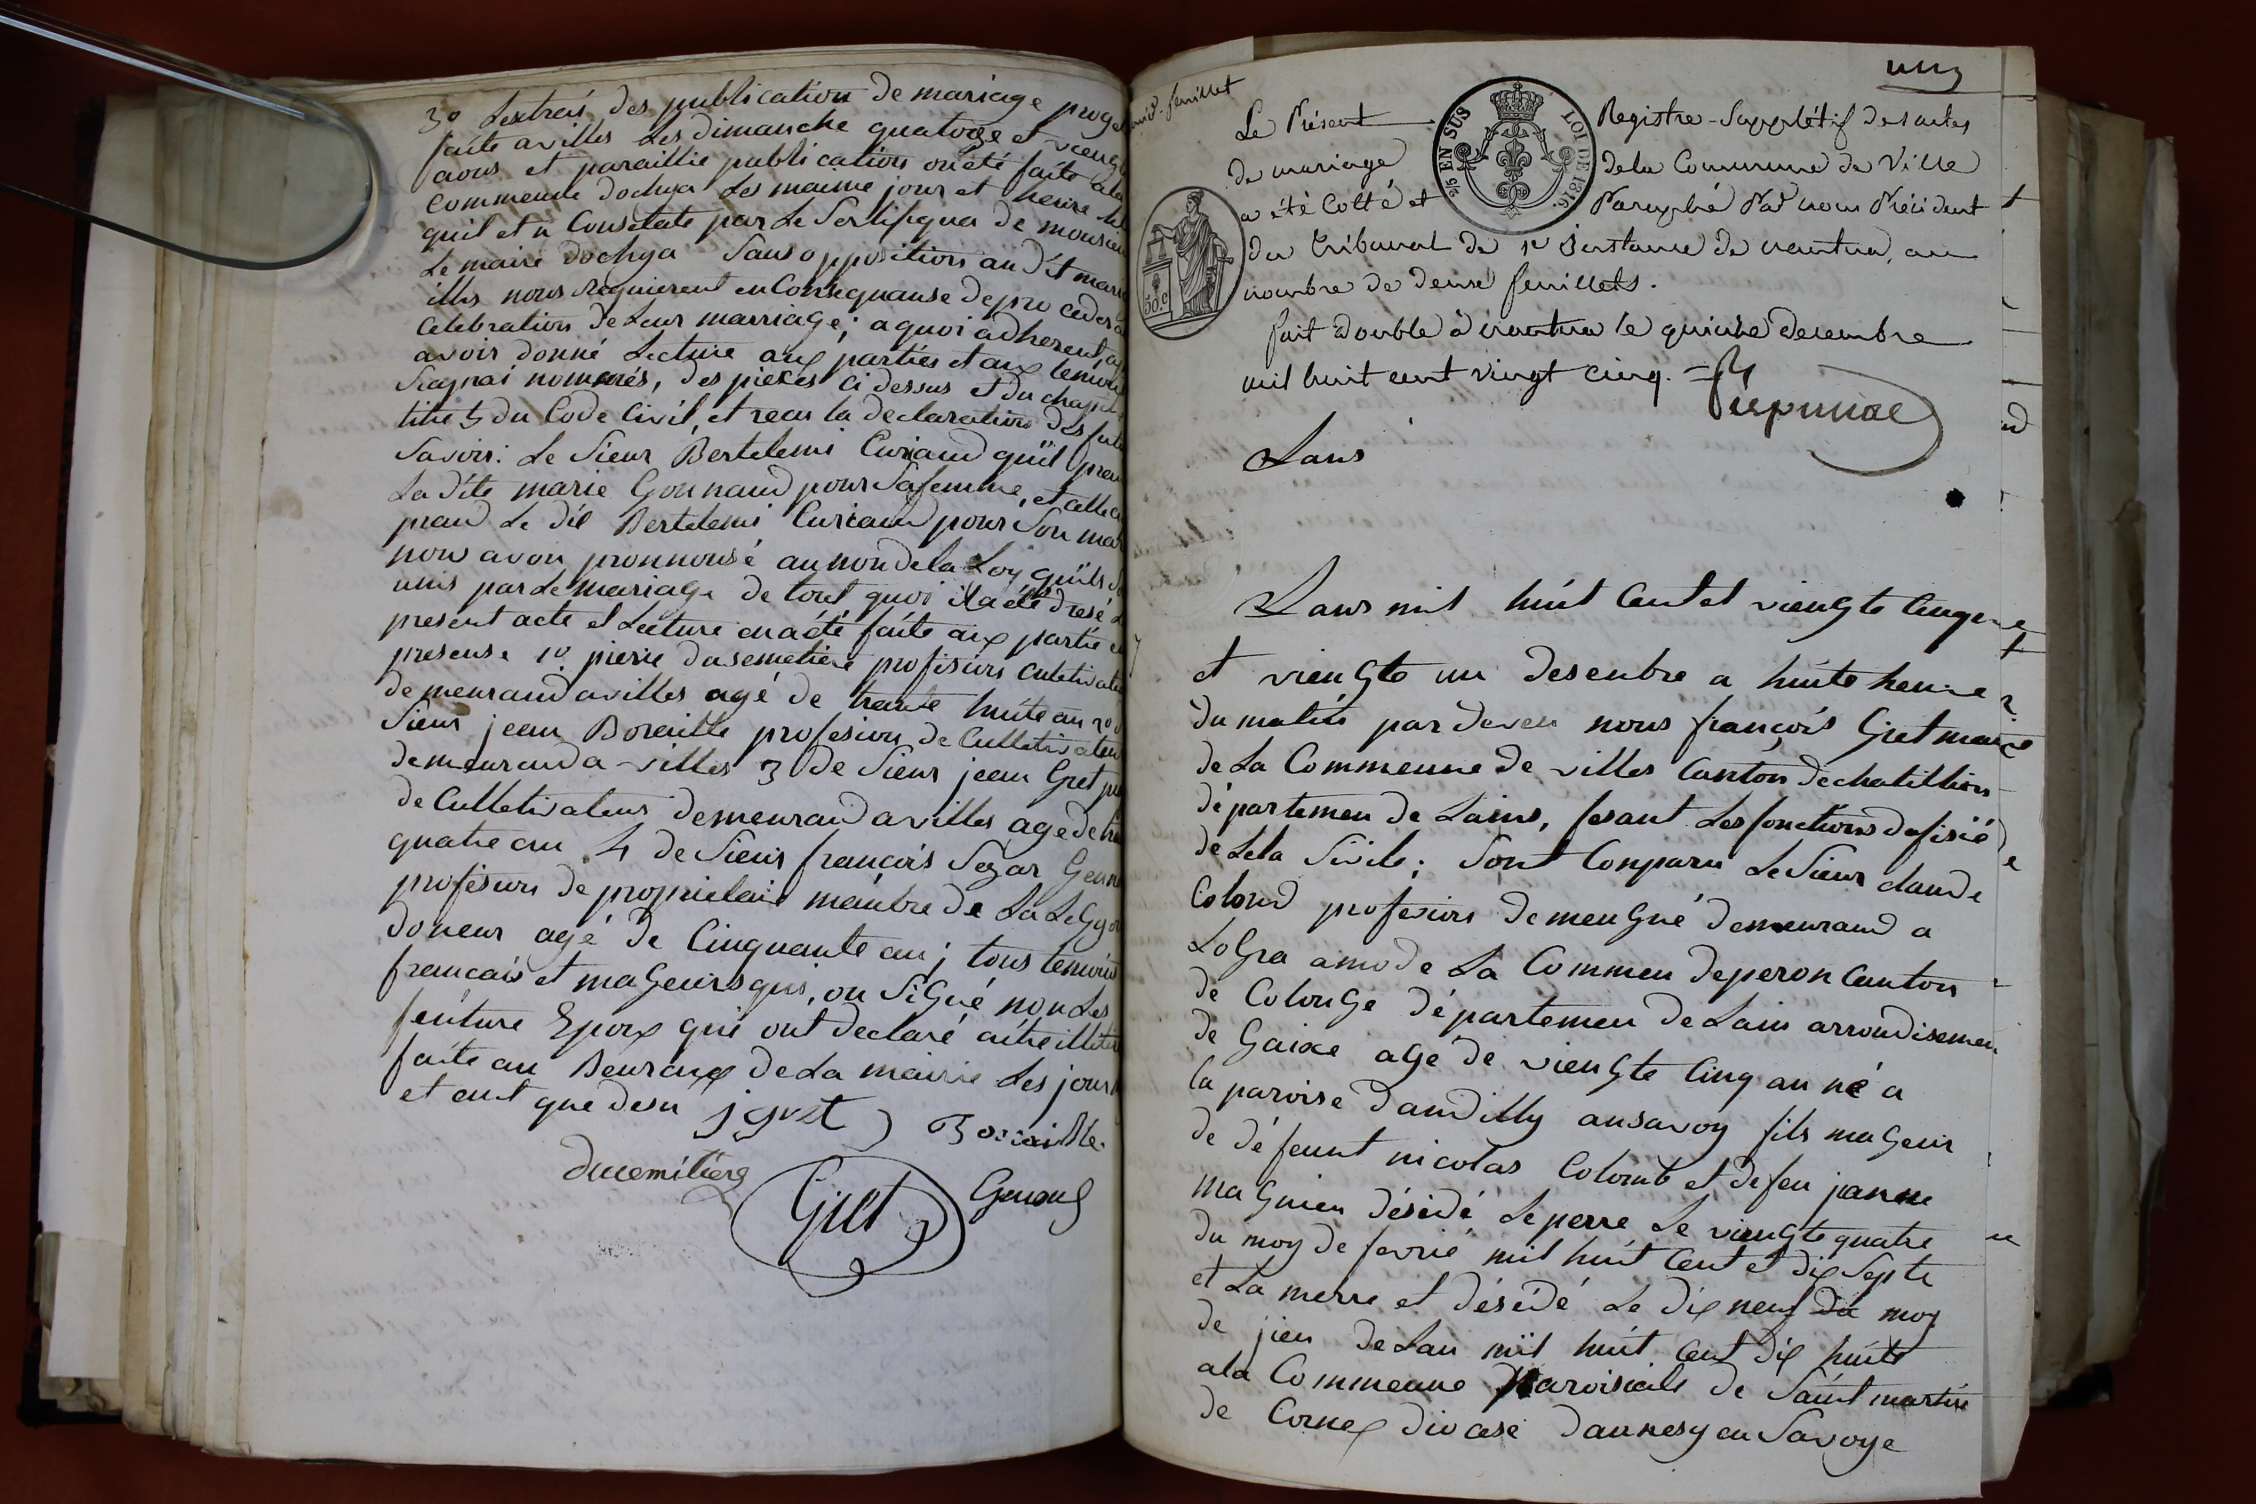 3º Lextrais des publication de mariage proge
faite avilles Les dimanche quatorze et viengt
aous et paraillie publication on été faite ala
Commeune dochya Les maime jour et heure
quil et a Consetate par Le Sertifiqua de monsieu
Le maire dochya Sans opposition au dit maria
illes nous requierent en Consequanse depro ceder a
Celebration de Leur marriage; a quoi adherent, a
avoir donné Lecture aux parties et aux temoins
Siaprai nommés, des pieces ci dessus et du chapit
titre 5 du Code Civil, et recu la declaration des futu
Savoir: Le Sieur Bertelemi Curiaud quil pren
La dite marie Gonnaud pour Safemme, et celle
prand Le dit Bertelemi Curiaud pour Son mar
nous avon pronnonsé au nom dela Loy quils
unis par Le mariage de tout quoi il a été dresé L
present acte et Lecture en aété faite aux partie e
presense 1º pierre dusemetiere profision Culetivate
demeurand avilles agé de trante huite an 2º
Sieur jean Boraille profesion de Culletivateur
demeurand a villes 3 de Sieur jean Gret
de Culletivateur demeurand avilles age de
quatre an 4 de Sieur françois Sezar Genn
profesion de proprietair manbre de La Legion
doneur agé de Cinquante an; tous temoins
francais et mageurs qui, on Signé non Les
feuture Epoux qui ont declaré aitre illetere
faite au Beuraux de La mairie Les jour
et ant que desu jgret Boraille
ducemitiere Gret Genoud
feuillet
unz
Le Présent Registre-Supplétif des actes
de mariage de la Commune de Ville
a été Cotté et Paraphé Par nous Président
du tribunal de 1re Instance de nantua, au
nombre de deux feuillets.
fait double à nantua le quinze decembre
mil huit cent vingt cinq.
25 EN SUS LOI DE 1816
50.c
Lans
Lans mil huit Cent et viengte Cinque
et viengte un desenbre a huite heure
du matin par deven nous françois Gret maire
de La Commeune de villes Canton dechatillion
département de Lains, fesant Les fonctions dofisié
de Leta Sivile; Sont Conparu Le Sieur claude
Colond profesion demeugné demeurand a
Logra amode La Commeu deperon Canton
de Colonge départemen de Lain arrondisemen
de Gaixe agé de viengte Cinq an né a
la paroise dandilly ansavoy fils mageur
de défeunt nicolas Colomb et defeu janne
magnien désédé Le perre Le viengte quatre
du moy de fevrié mil huit Cent et dix Septe
et La merre et désédé Le dix neuf du moy
de jien de Lan mil huit Cent dix huite
ala Commeune paroisiale de Saint martin
de Cornex diocese dannesy en Savoye